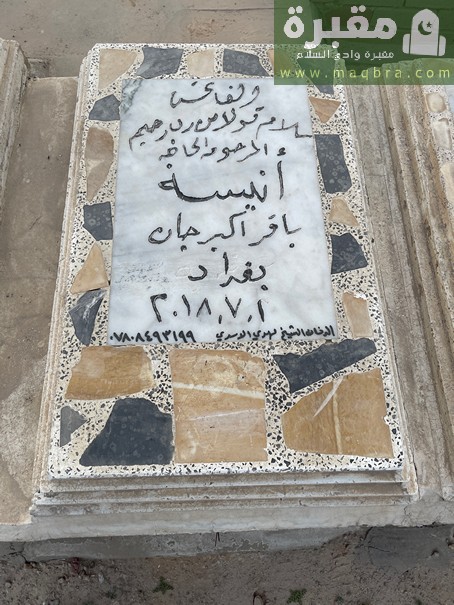 مقبرة
مقبرة وادي السلام
www.maqbra.com
الفاتحة
سلام قولا من رب رحيم
المرحومه الحاجه
أنيسه
باقر اكبر جان
بغداد
٢٠١٨.٧.١
الدفان الشيخ مهدي الاسدي ٠٧٨٠٨٤٩٣١٩٩